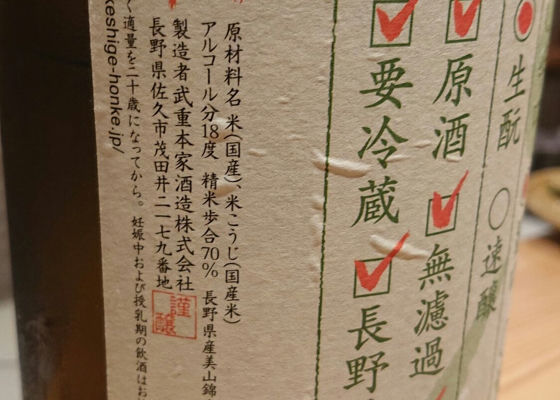 生酛
遠醸
原酒
無濾過
要冷蔵
長野
原材料名 米(国産)、米こうじ(国産米)
アルコール分18度 精米歩合70% 長野県産美山錦
製造者 武重本家酒造株式会社
長野県佐久市茂田井二一七九番地
謹醸
く適量を二十歳になってから。妊娠中および授乳期の飲酒はお
keshige-honke.jp/